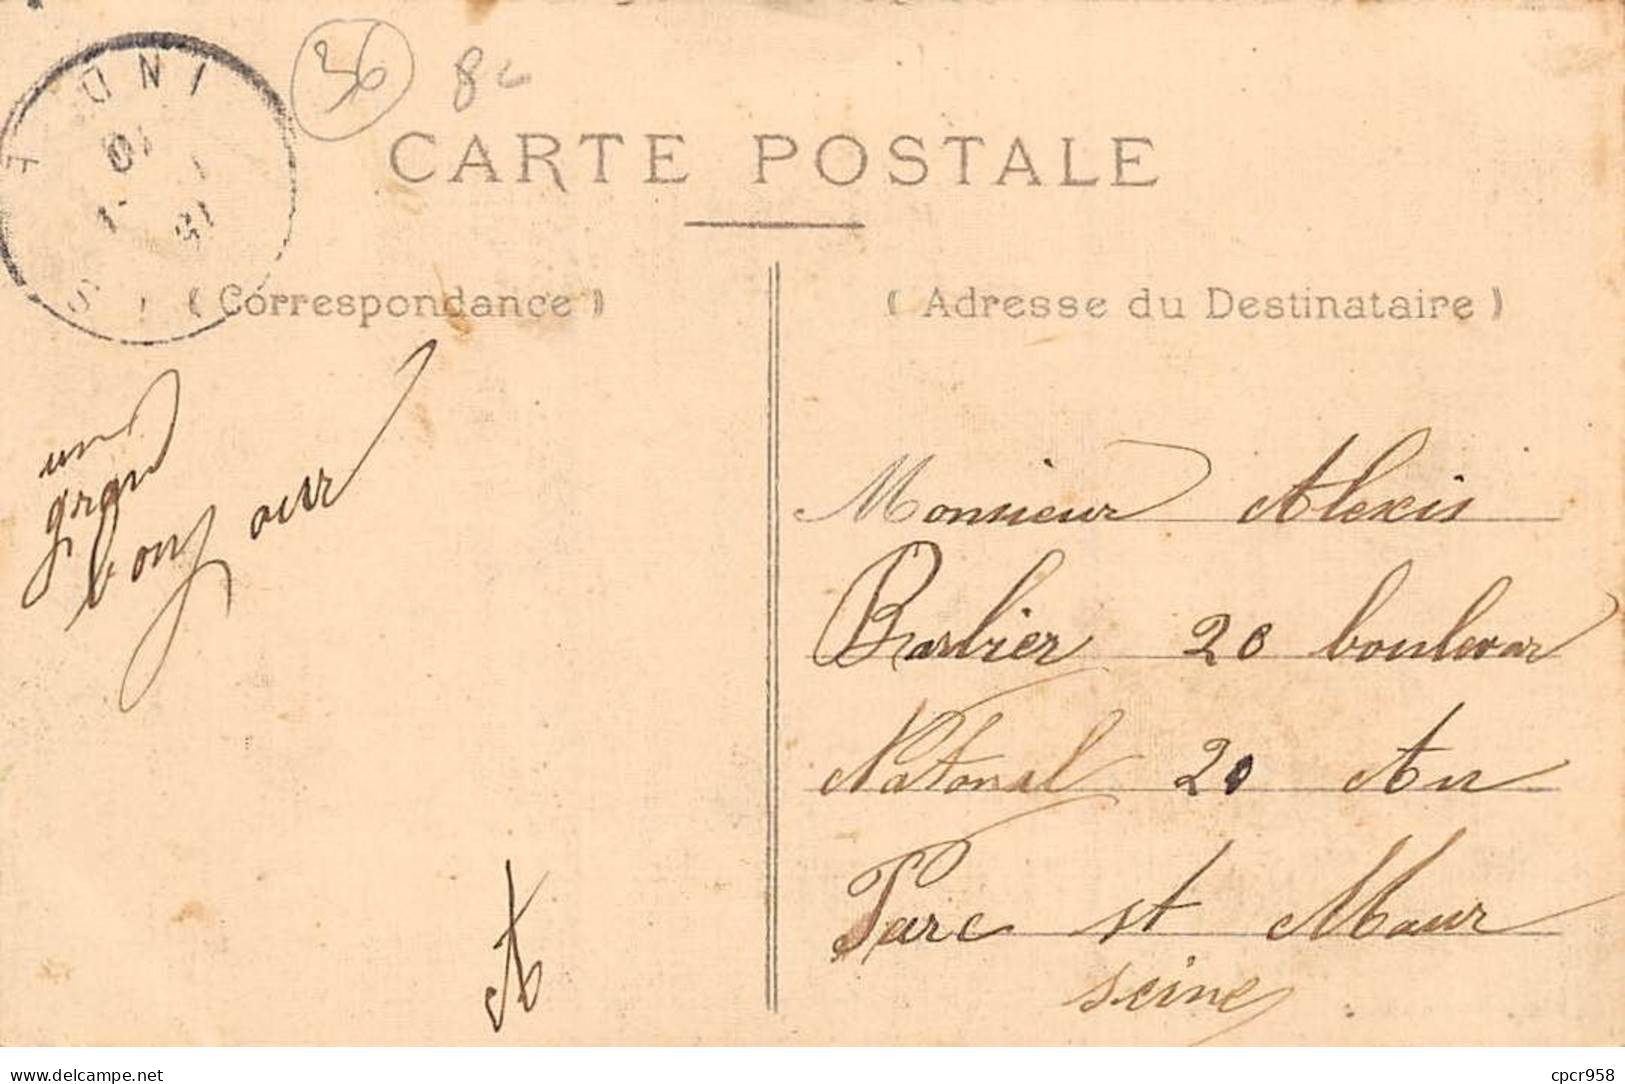 36
8c
CARTE POSTALE
( Correspondance )
( Adresse du Destinataire )
un
grand
bonjour
A
Monsieur Alexis
Barbier 20 boulevar
National 20 Au
Parc st Maur
seine
delcampe.net
cpcr958